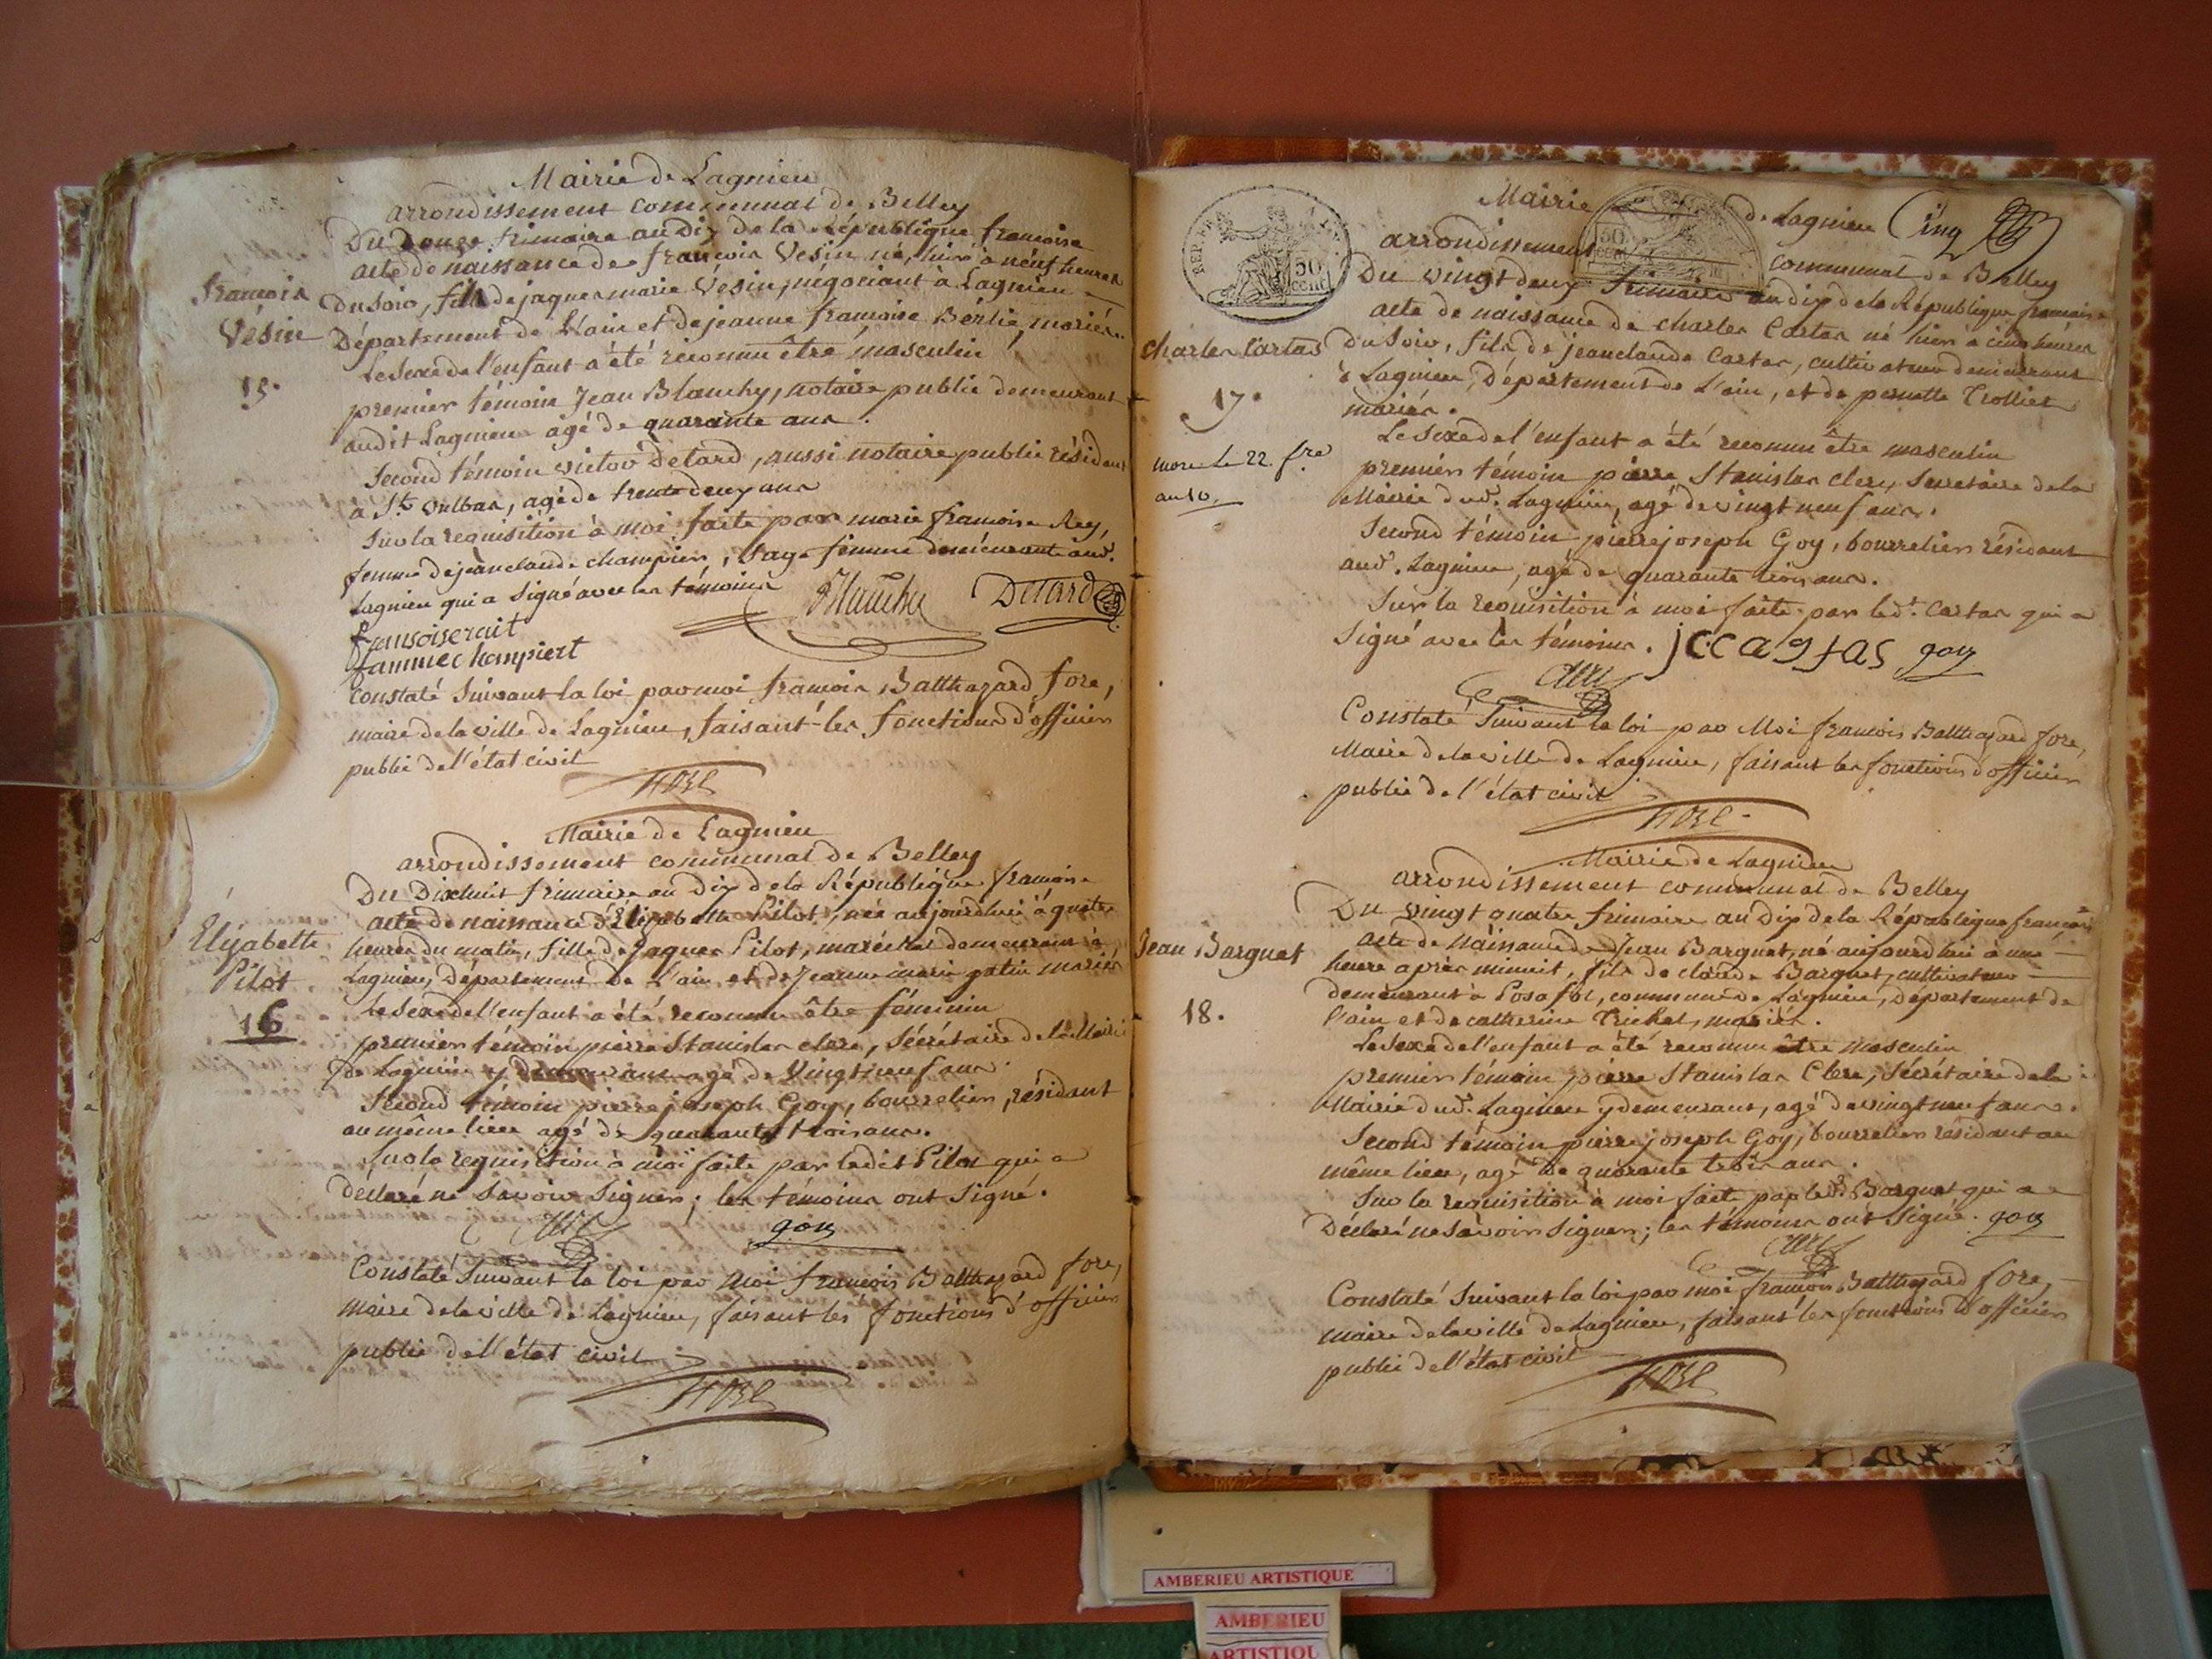 Mairie de Lagnieu
arrondissement communal de Belley
Du Douze frimaire an Dix de la République francoise
acte de naissance de francois Vésin né, hier à neuf heures
francois
Du Soir, fils de jaques marie Vésin, négociant à Lagnieu
Vésin
Département de L'ain et de jeanne francoise Berlié, mariés.
Le Sexe de l'enfant a été reconnu être masculin
15.
premier témoin Jean Blanchy, notaire public demeurant
audit Lagnieu agé de quarante ans.
Second témoin victor Détard, aussi notaire public résidant
à St. vulbas, agé de trente deux ans
Sur la requisition à moi faite par marie francoise Rey,
femme de jean claude champier, Sage femme demeurant aud.
Lagnieu qui a Signé avec les témoins
Blanchy Détard
fransoise rait
famme champiert
Constaté Suivant la loi par moi francois Balthazard fore,
maire de la ville de Lagnieu, faisant les fonctions d'officier
public de l'état civil
FORE
Mairie de Lagnieu
arrondissement communal de Belley
Du Dixhuit frimaire an Dix de la République francoise
acte de naissance d'Elizabette Pilot, née aujourdhui à quatre
Elizabette
heures du matin, fille de Jaques Pilot, maréchal demeurant à
Pilot
Lagnieu, Département de L'ain et de Jeanne marie patin mariés
Le Sexe de l'enfant a été reconnu être féminin
16
premier témoin pierre Stanislas clerc, Sécrétaire de la Mairie
de Lagnieu y demeurant agé de Vingt neuf ans.
Second témoin pierre joseph Goy, bourrelier, résidant
au même lieu agé de quarante trois ans.
Sur la requisition à moi faite par ledit Pilot qui a
déclaré ne Savoir Signer; les témoins ont Signé.
Clerc goy
Constaté Suivant la loi par Moi francois Balthazard fore,
maire de la ville de Lagnieu, faisant les fonctions d'officier
public de l'état civil
FORE
Mairie de Lagnieu Cinq
REP. FRA.
50 cent
50 cent
arrondissement communal de Belley
Du vingt deux frimaire an dix de la République francoise
acte de naissance de charles Cartas né hier à cinq heures
charles Cartas
du Soir, fils de jean claude Cartas, cultivateur demeurant
à Lagnieu, Département de L'ain, et de pernette Trollier
17.
mariés.
Le Sexe de l'enfant a été reconnu être masculin
mort le 22. fre
an 10.
premier témoin pierre Stanislas clerc, Secretaire de la
Mairie dud. Lagnieu, agé de vingt neuf ans.
Second témoin pierre joseph Goy, bourrelier résidant
aud. Lagnieu, agé de quarante trois ans.
Sur la requisition à moi faite par led.t Cartas qui a
Signé avec les témoins. jccartas goy
Clerc
Constaté Suivant la loi par Moi francois Balthazard fore,
Maire de la ville de Lagnieu, faisant les fonctions d'officier
public de l'état civil
FORE
Mairie de Lagnieu
arrondissement communal de Belley
Du vingt quatre frimaire an Dix de la République francoise
acte de Naissance de Jean Barquet, né aujourd'hui à une
Jean Barquet
heure après minuit, fils de claude Barquet, cultivateur
demeurant à Posafol, commune de Lagnieu, Département de
18.
l'ain et de catherine Trichet, mariés.
Le Sexe de l'enfant a été reconnu être Masculin
premier témoin pierre Stanislas Clerc, Sécrétaire de la
Mairie dud. Lagnieu y demeurant, agé de vingt neuf ans.
Second témoin pierre joseph Goy, bourrelier résidant au
même lieu, agé de quarante trois ans.
Sur la requisition à moi faite par led. Barquet qui a
Déclaré ne Savoir Signer; les témoins ont Signé. goy
Clerc
Constaté Suivant la loi par moi francois Balthazard fore,
maire de la ville de Lagnieu, faisant les fonctions d'officier
public de l'état civil
FORE
AMBERIEU ARTISTIQUE
AMBERIEU
ARTISTIQU